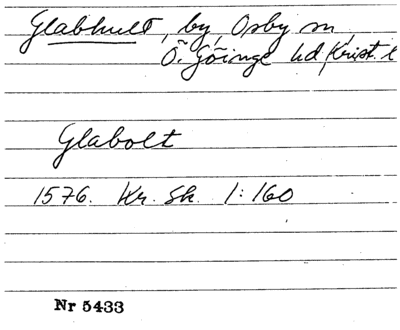 Glabhult, by, Osby sn,
Ö. Göinge hd, Krist. l
Glabolt
1576. Kr. Sk. 1:160
Nr 5433